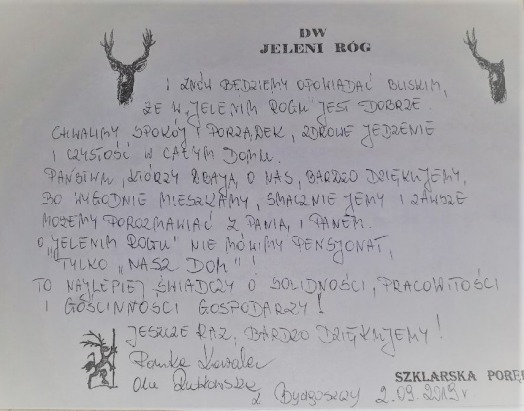 DW
JELENI RÓG
I ZNÓW BĘDZIEMY OPOWIADAĆ BLISKIM,
ŻE W „JELENIM ROGU” JEST DOBRZE.
CHWALIMY SPOKÓJ I PORZĄDEK, ZDROWE JEDZENIE
I CZYSTOŚĆ W CAŁYM DOMU.
PAŃSTWU, KTÓRZY DBAJĄ O NAS, BARDZO DZIĘKUJEMY,
BO WYGODNIE MIESZKAMY, SMACZNIE JEMY I ZAWSZE
MOŻEMY POROZMAWIAĆ Z PANIĄ I PANEM.
O „JELENIM ROGU” NIE MÓWIMY PENSJONAT,
TYLKO „NASZ DOM”!
TO NAJLEPIEJ ŚWIADCZY O SOLIDNOŚCI, PRACOWITOŚCI
I GOŚCINNOŚCI GOSPODARZY!
JESZCZE RAZ, BARDZO DZIĘKUJEMY!
z Bydgoszczy 2.09.2019 r.
SZKLARSKA PORĘ